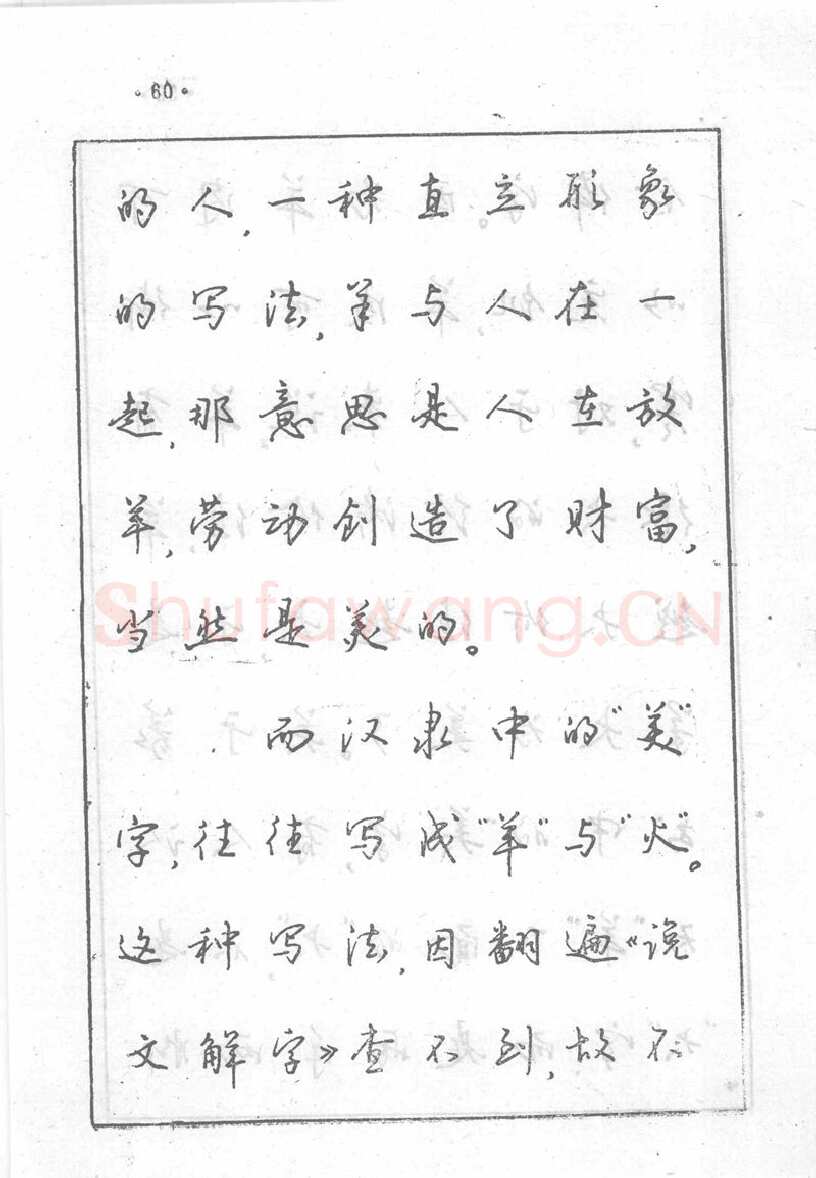 ·60·
的人,一种直立形象
的写法,羊与人在一
起,那意思是人在放
羊,劳动创造了财富,
当然是美的。
Shufawang.CN
而汉隶中的“美”
字,往往写成“羊”与“火”。
这种写法,因翻遍《说
文解字》查不到,故不